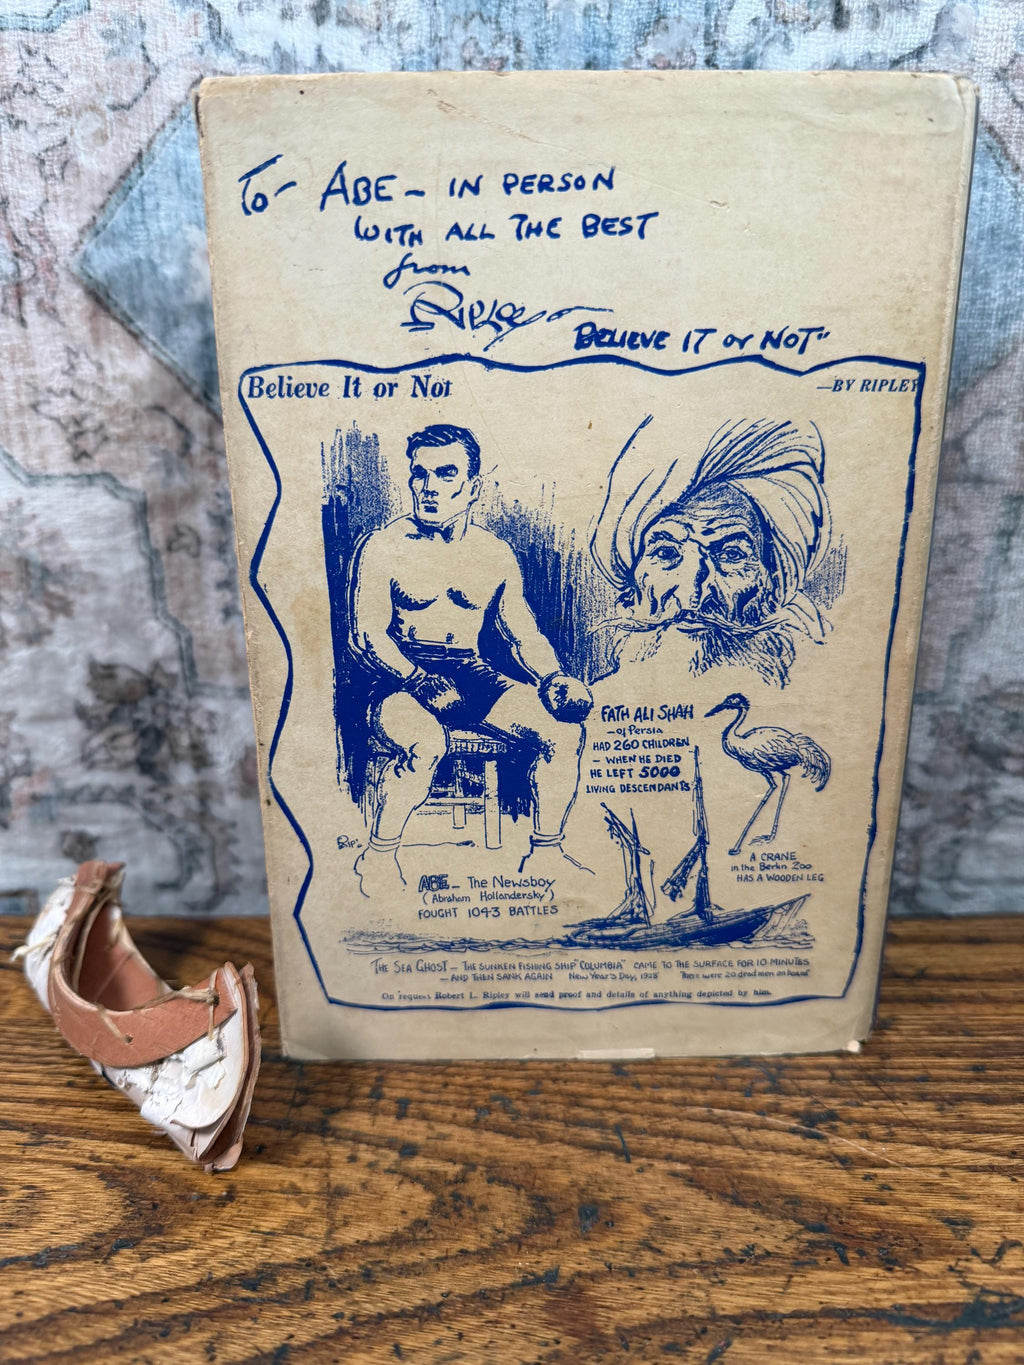 To- ABE - IN PERSON
WITH ALL THE BEST
from
RIPLEY -
"BELIEVE IT or NOT"
Believe It or Not
—BY RIPLEY
FATH ALI SHAH
-of Persia
HAD 260 CHILDREN
- WHEN HE DIED
HE LEFT 5000
LIVING DESCENDANTS
Rip's
A CRANE
in the Berlin Zoo
HAS A WOODEN LEG
ABE - The Newsboy
(Abraham Hollandersky)
FOUGHT 1043 BATTLES
THE SEA GHOST - THE SUNKEN FISHING SHIP "COLUMBIA" CAME TO THE SURFACE FOR 10 MINUTES
- AND THEN SANK AGAIN New Year's Day, 1928 There were 20 dead men on board
On request Robert L. Ripley will send proof and details of anything depicted by him.